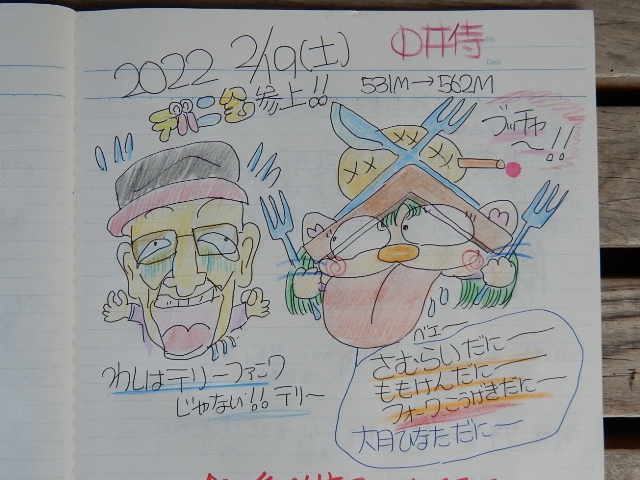 2022 2/19(土)
中井侍
No.
Date
531M→562M
デバニ会参上!!
ブッチャ
〜!!
ベェー
わしはテリーファンク
じゃない!! テリー
さむらいだにー
ももけんだにー
フォークこうげきだにー
大月ひなただにー